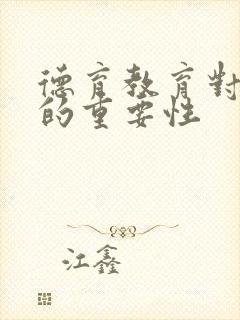 德育教育對
的重要性
江鑫